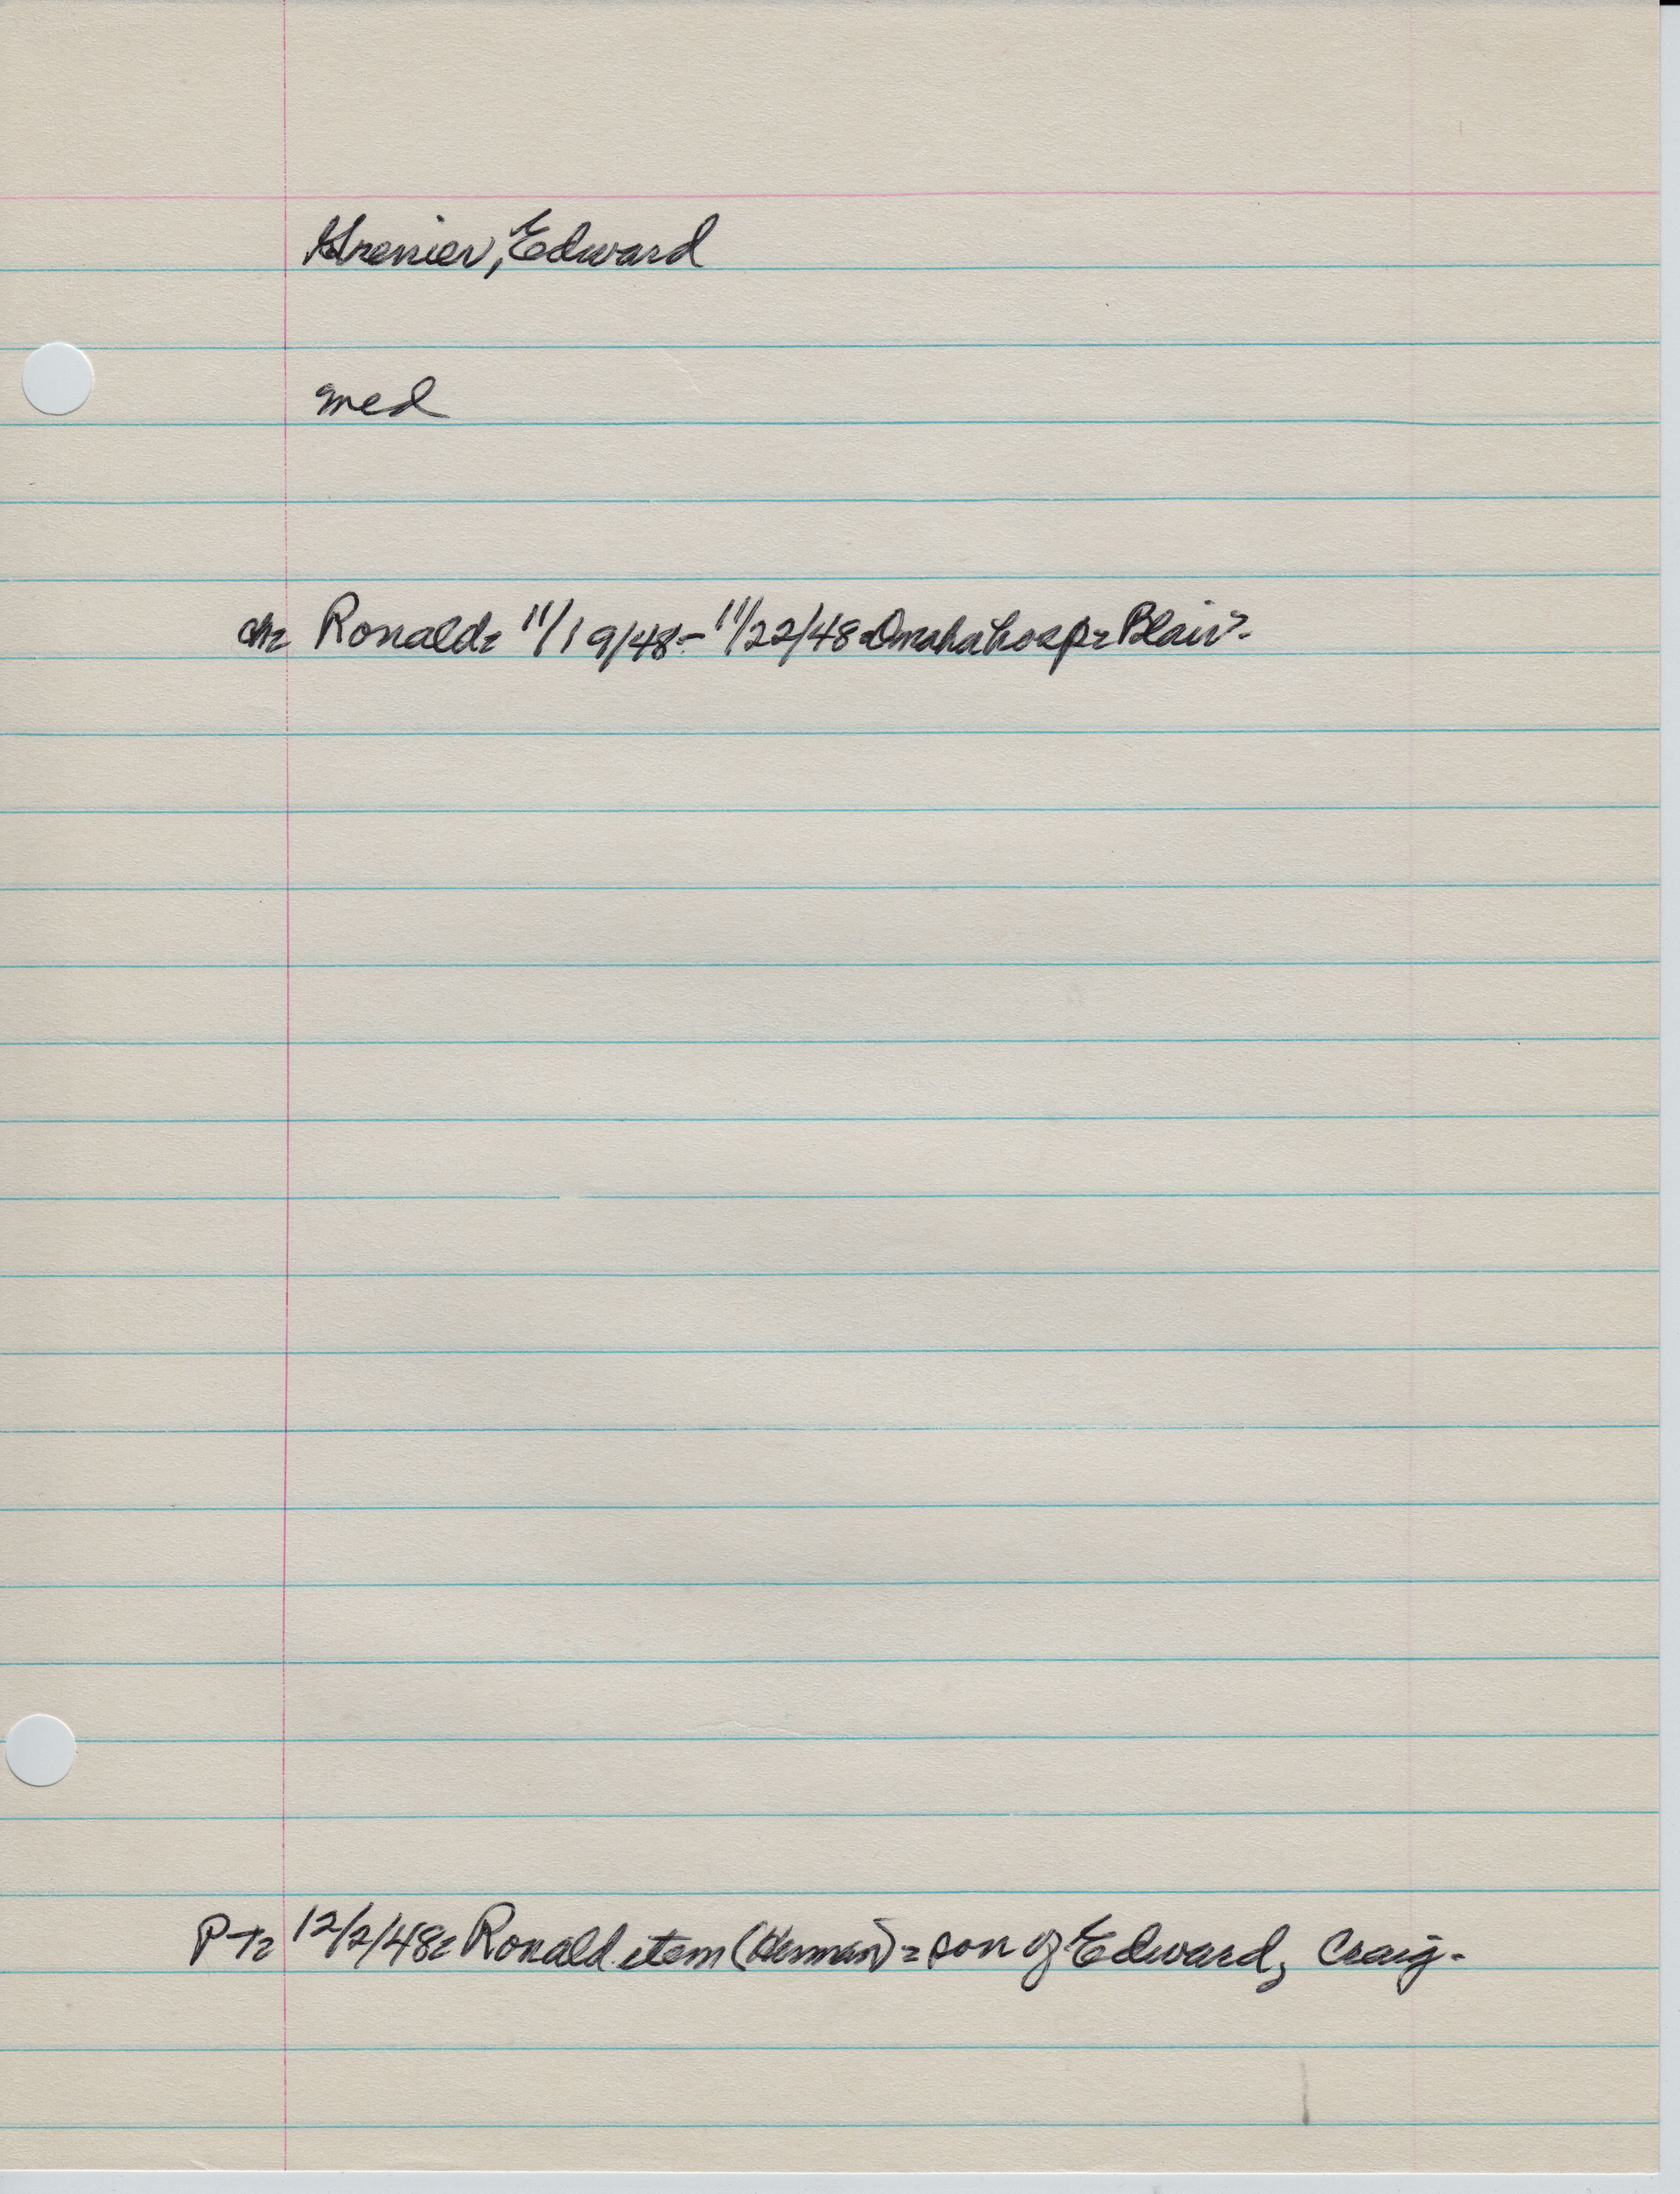 Grenier, Edward
med
ch= Ronald= 11/19/48 - 11/22/48 = Omaha hosp = Blair.
PT= 12/2/48= Ronald item (Herman) = son of Edward, Craig.